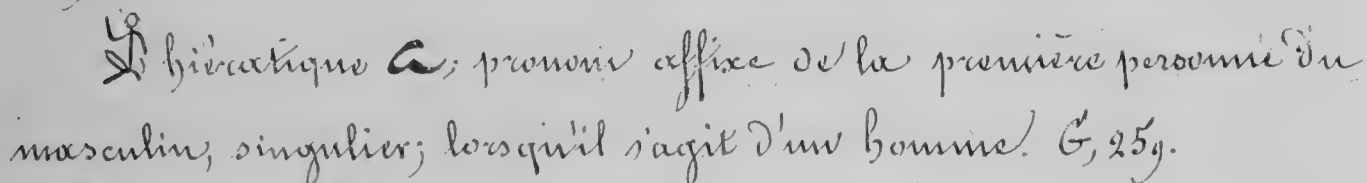 hiératique ; pronom affixe de la première personne du
masculin, singulier; lorsqu'il s'agit d'un homme. G, 259.